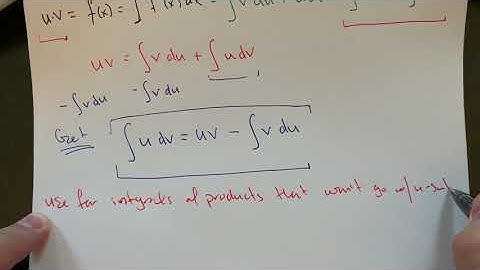 u·v = f(x) = ∫ f'(x) dx = ∫ v du +
uv = ∫ v du + ∫ u dv
- ∫ v du - ∫ v du
Get
∫ u dv = uv - ∫ v du
use for integrals of products that won't go w/ u-su